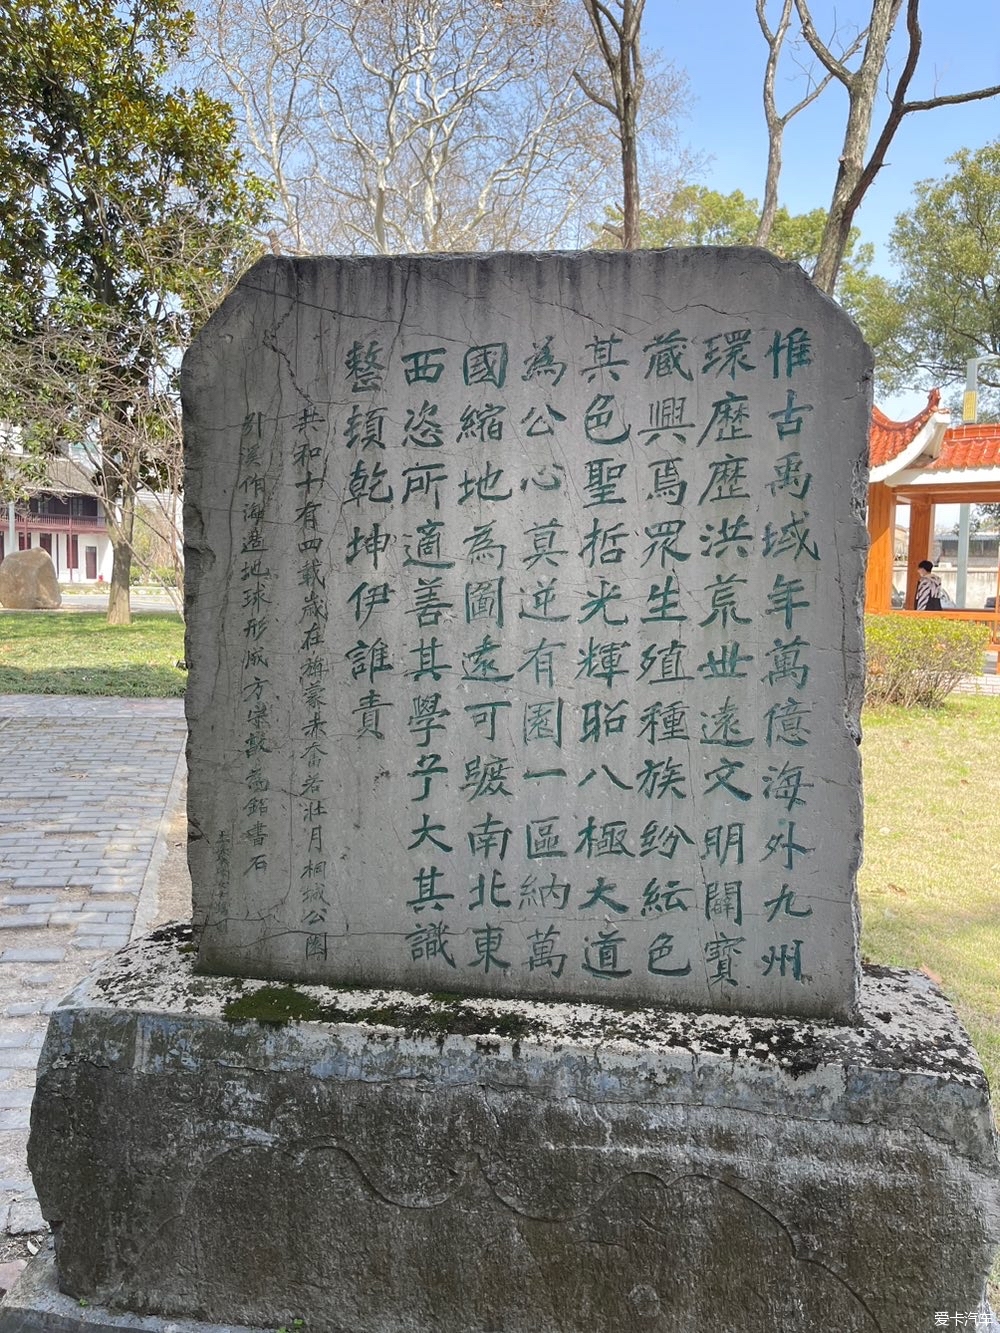 惟古禹域年萬億海外九州
環歷歷洪荒世遠文明闢寳
蔵興焉眾生殖種族紛紜色
其色聖哲光輝昭八極大道
為公心莫逆有園一區納萬
國縮地為圖遠可躔南北東
西恣所適善其學子大其識
整頓乾坤伊誰責
共和十有四載歲在旃蒙赤奮若壯月桐城公園
引渠作海造地球形成方宗毅為銘書石
爱卡汽车